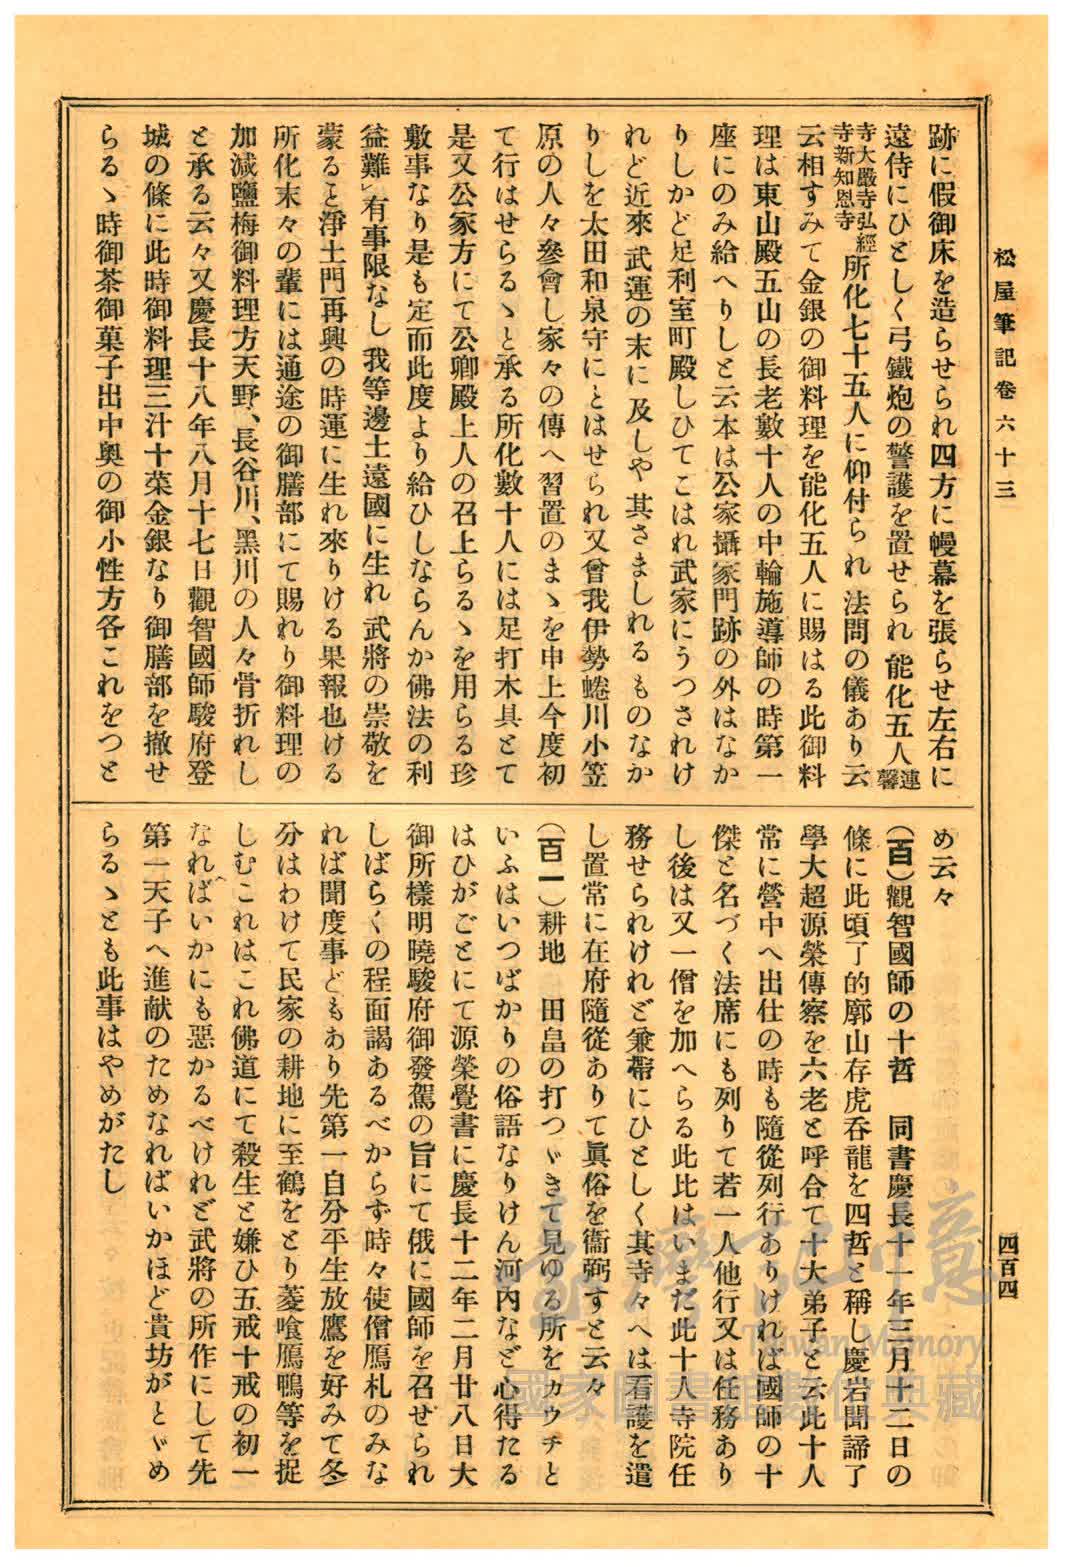 松屋筆記卷六十三
四百四
跡に假御床を造らせられ四方に幔幕を張らせ左右に
遠侍にひとしく弓鐵炮の警護を置せられ能化五人連馨
寺大嚴寺弘經
寺新知恩寺
所化七十五人に仰付られ法問の儀あり云
云相すみて金銀の御料理を能化五人に賜はる此御料
理は東山殿五山の長老數十人の中輪施導師の時第一
座にのみ給へりしと云本は公家攝家門跡の外はなか
りしかど足利室町殿しひてこはれ武家にうつされけ
れど近來武運の末に及しや其さましれるものなか
りしを太田和泉守にとはせられ又曾我伊勢蜷川小笠
原の人々參會し家々の傳へ習置のまゝを申上今度初
て行はせらるゝと承る所化數十人には足打木具とて
是又公家方にて公卿殿上人の召上らるゝを用らる珍
敷事なり是も定而此度より給ひしならんか佛法の利
益難有事限なし我等邊土遠國に生れ武將の崇敬を
蒙ると淨土門再興の時運に生れ來りける果報也ける
所化末々の輩には通途の御膳部にて賜れり御料理の
加減鹽梅御料理方天野、長谷川、黑川の人々骨折れし
と承る云々又慶長十八年八月十七日觀智國師駿府登
城の條に此時御料理三汁十菜金銀なり御膳部を撤せ
らるゝ時御茶御菓子出中奧の御小性方各これをつと
め云々
(百)觀智國師の十哲 同書慶長十一年三月十二日の
條に此頃了的廓山存虎呑龍を四哲と稱し慶岩聞諦了
學大超源榮傳察を六老と呼合て十大弟子と云此十人
常に營中へ出仕の時も隨從列行ありければ國師の十
傑と名づく法席にも列りて若一人他行又は任務あり
し後は又一僧を加へらる此比はいまだ此十人寺院任
務せられけれど兼帶にひとしく其寺々へは看護を遣
し置常に在府隨從ありて眞俗を衞弼すと云々
(百一)耕地 田畠の打つゞきて見ゆる所をカウチと
いふはいつばかりの俗語なりけん河內など心得たる
はひがごとにて源榮覺書に慶長十二年二月廿八日大
御所樣明曉駿府御發駕の旨にて俄に國師を召せられ
しばらくの程面謁あるべからず時々使僧鴈札のみな
れば聞度事どもあり先第一自分平生放鷹を好みて冬
分はわけて民家の耕地に至鶴をとり菱喰鴈鴨等を捉
しむこれはこれ佛道にて殺生と嫌ひ五戒十戒の初一
なればいかにも惡かるべけれど武將の所作にして先
第一天子へ進献のためなればいかほど貴坊がとゞめ
らるゝとも此事はやめがたし
臺灣記憶
Taiwan Memory
國家圖書館數位典藏